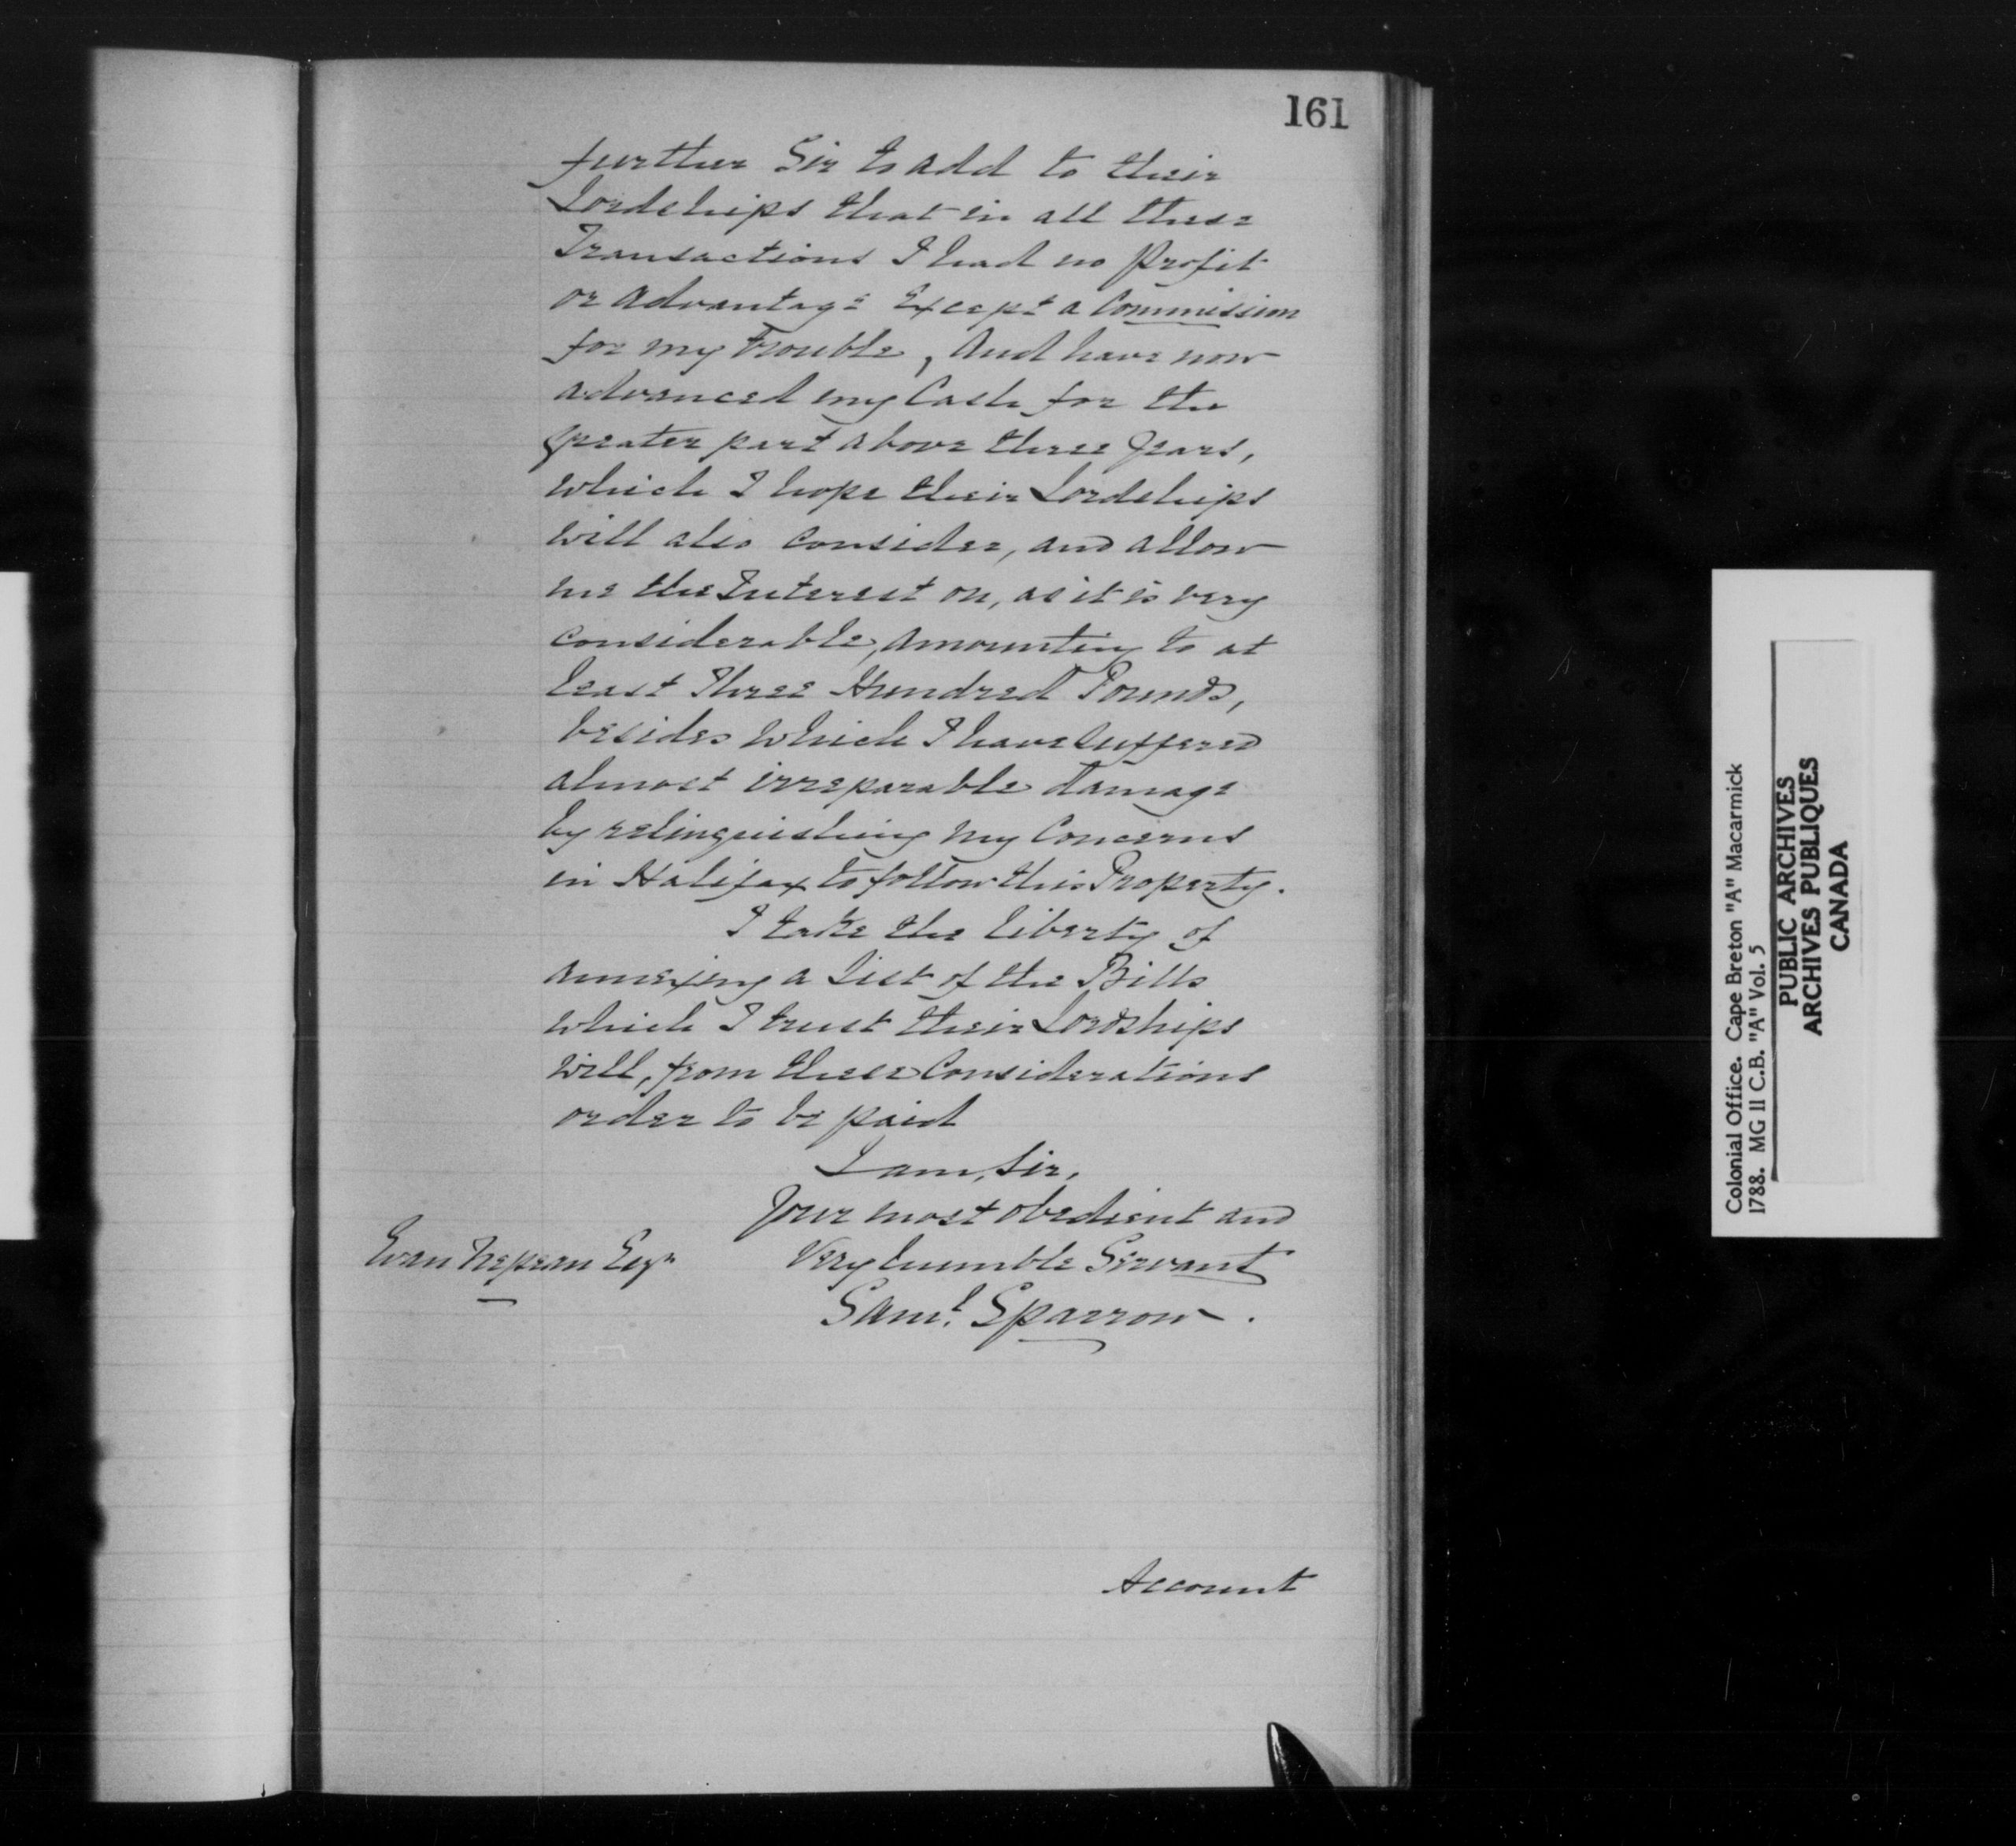 161
further Sir to add to their
Lordships that in all these
Transactions I had no Profit
or advantage Except a Commission
for my Trouble, And have now
advanced my Cash for the
greater part above three years,
which I hope their Lordships
will also consider, and allow
me the Interest on, as it is very
considerable, amounting to at
least Three Hundred Pounds,
besides which I have suffered
almost irreparable damage
by relinquishing my Concerns
in Halifax to follow this Property.
I take the liberty of
annexing a List of the Bills
which I trust their Lordships
will, from these Considerations
order to be paid
I am, Sir,
Your most obedient and
Very humble Servant
Evan Nepean Esqr
Saml. Sparrow.
Account
Colonial Office. Cape Breton "A" Macarmick
1788. MG 11 C.B. "A" Vol. 5
PUBLIC ARCHIVES
ARCHIVES PUBLIQUES
CANADA